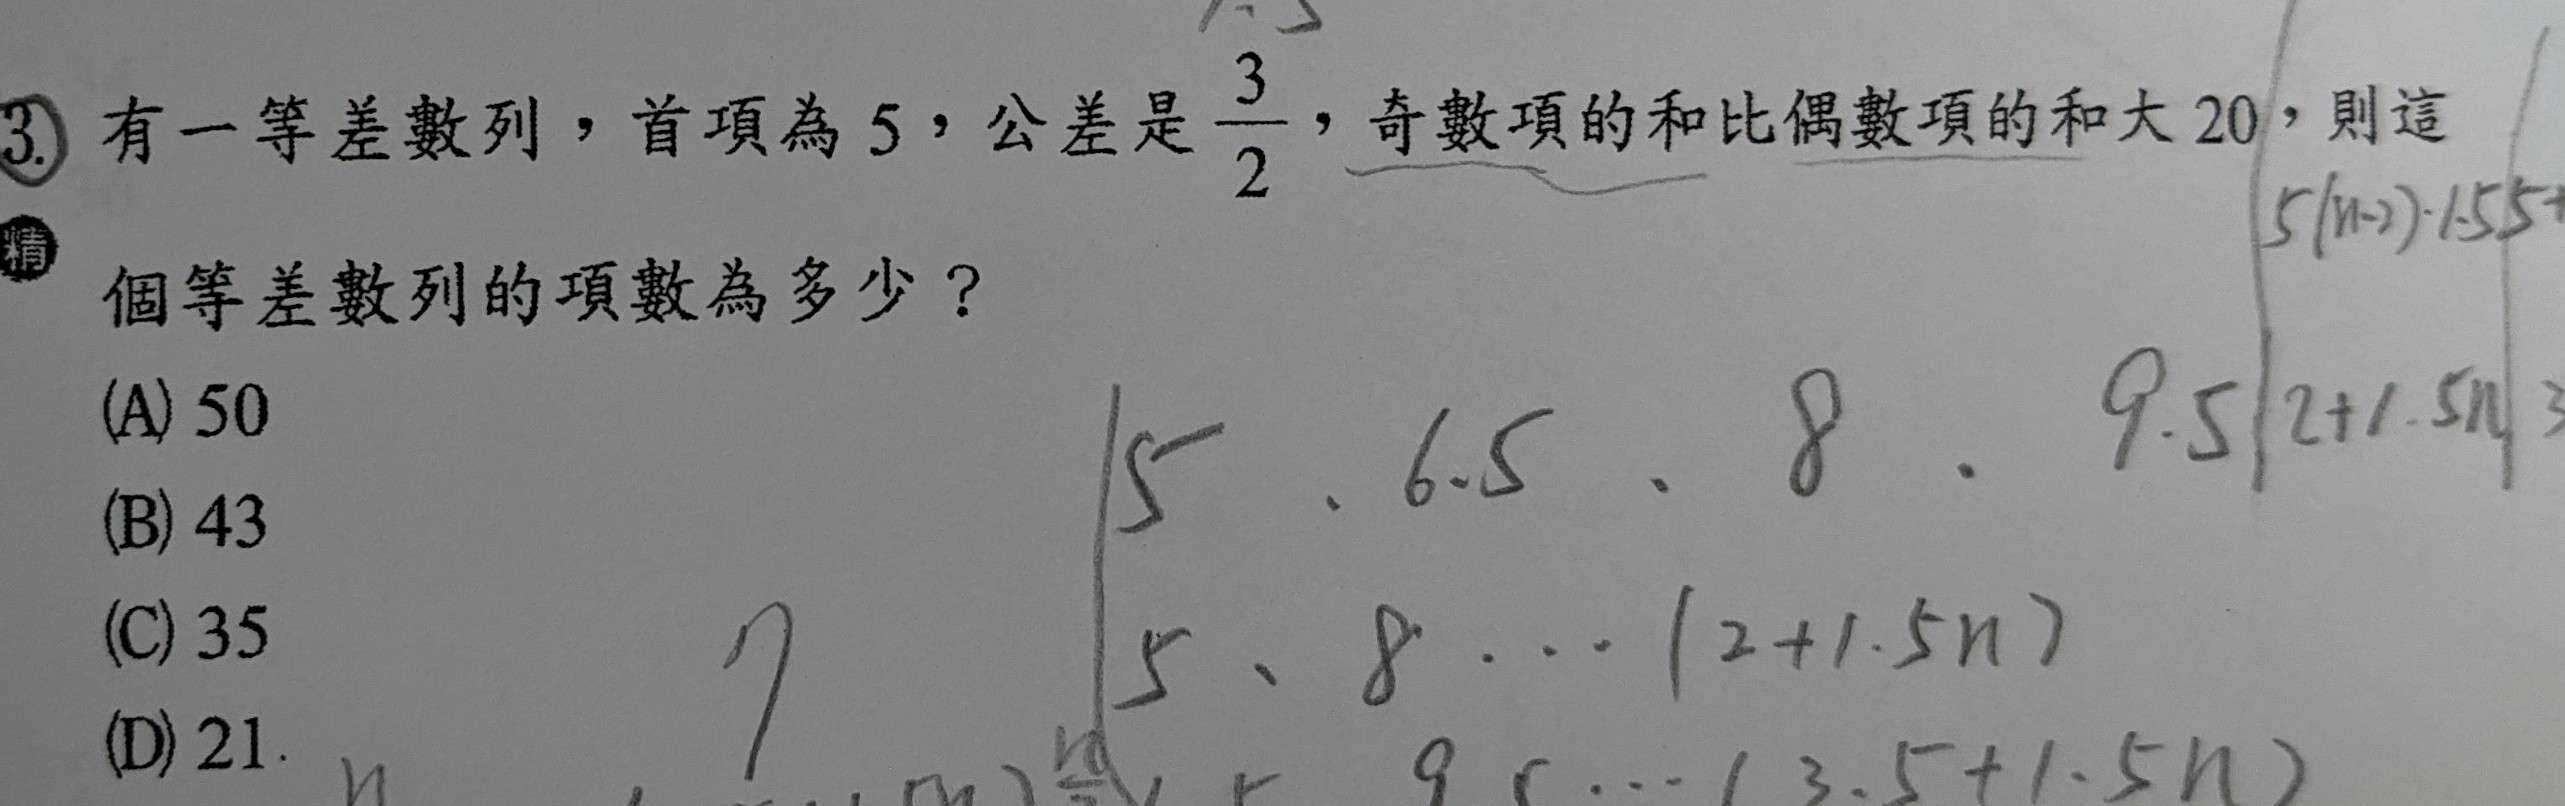 3. 有一等差數列，首項為 5，公差是 3/2，奇數項的和比偶數項的和大 20，則這
精
5(n-2)·1.5 5+
個等差數列的項數為多少？
(A) 50
(B) 43
(C) 35
(D) 21.
5、6.5、8、9.5 2+1.5n 3
5、8...(2+1.5n)
?
9.5...(3.5+1.5n)
n